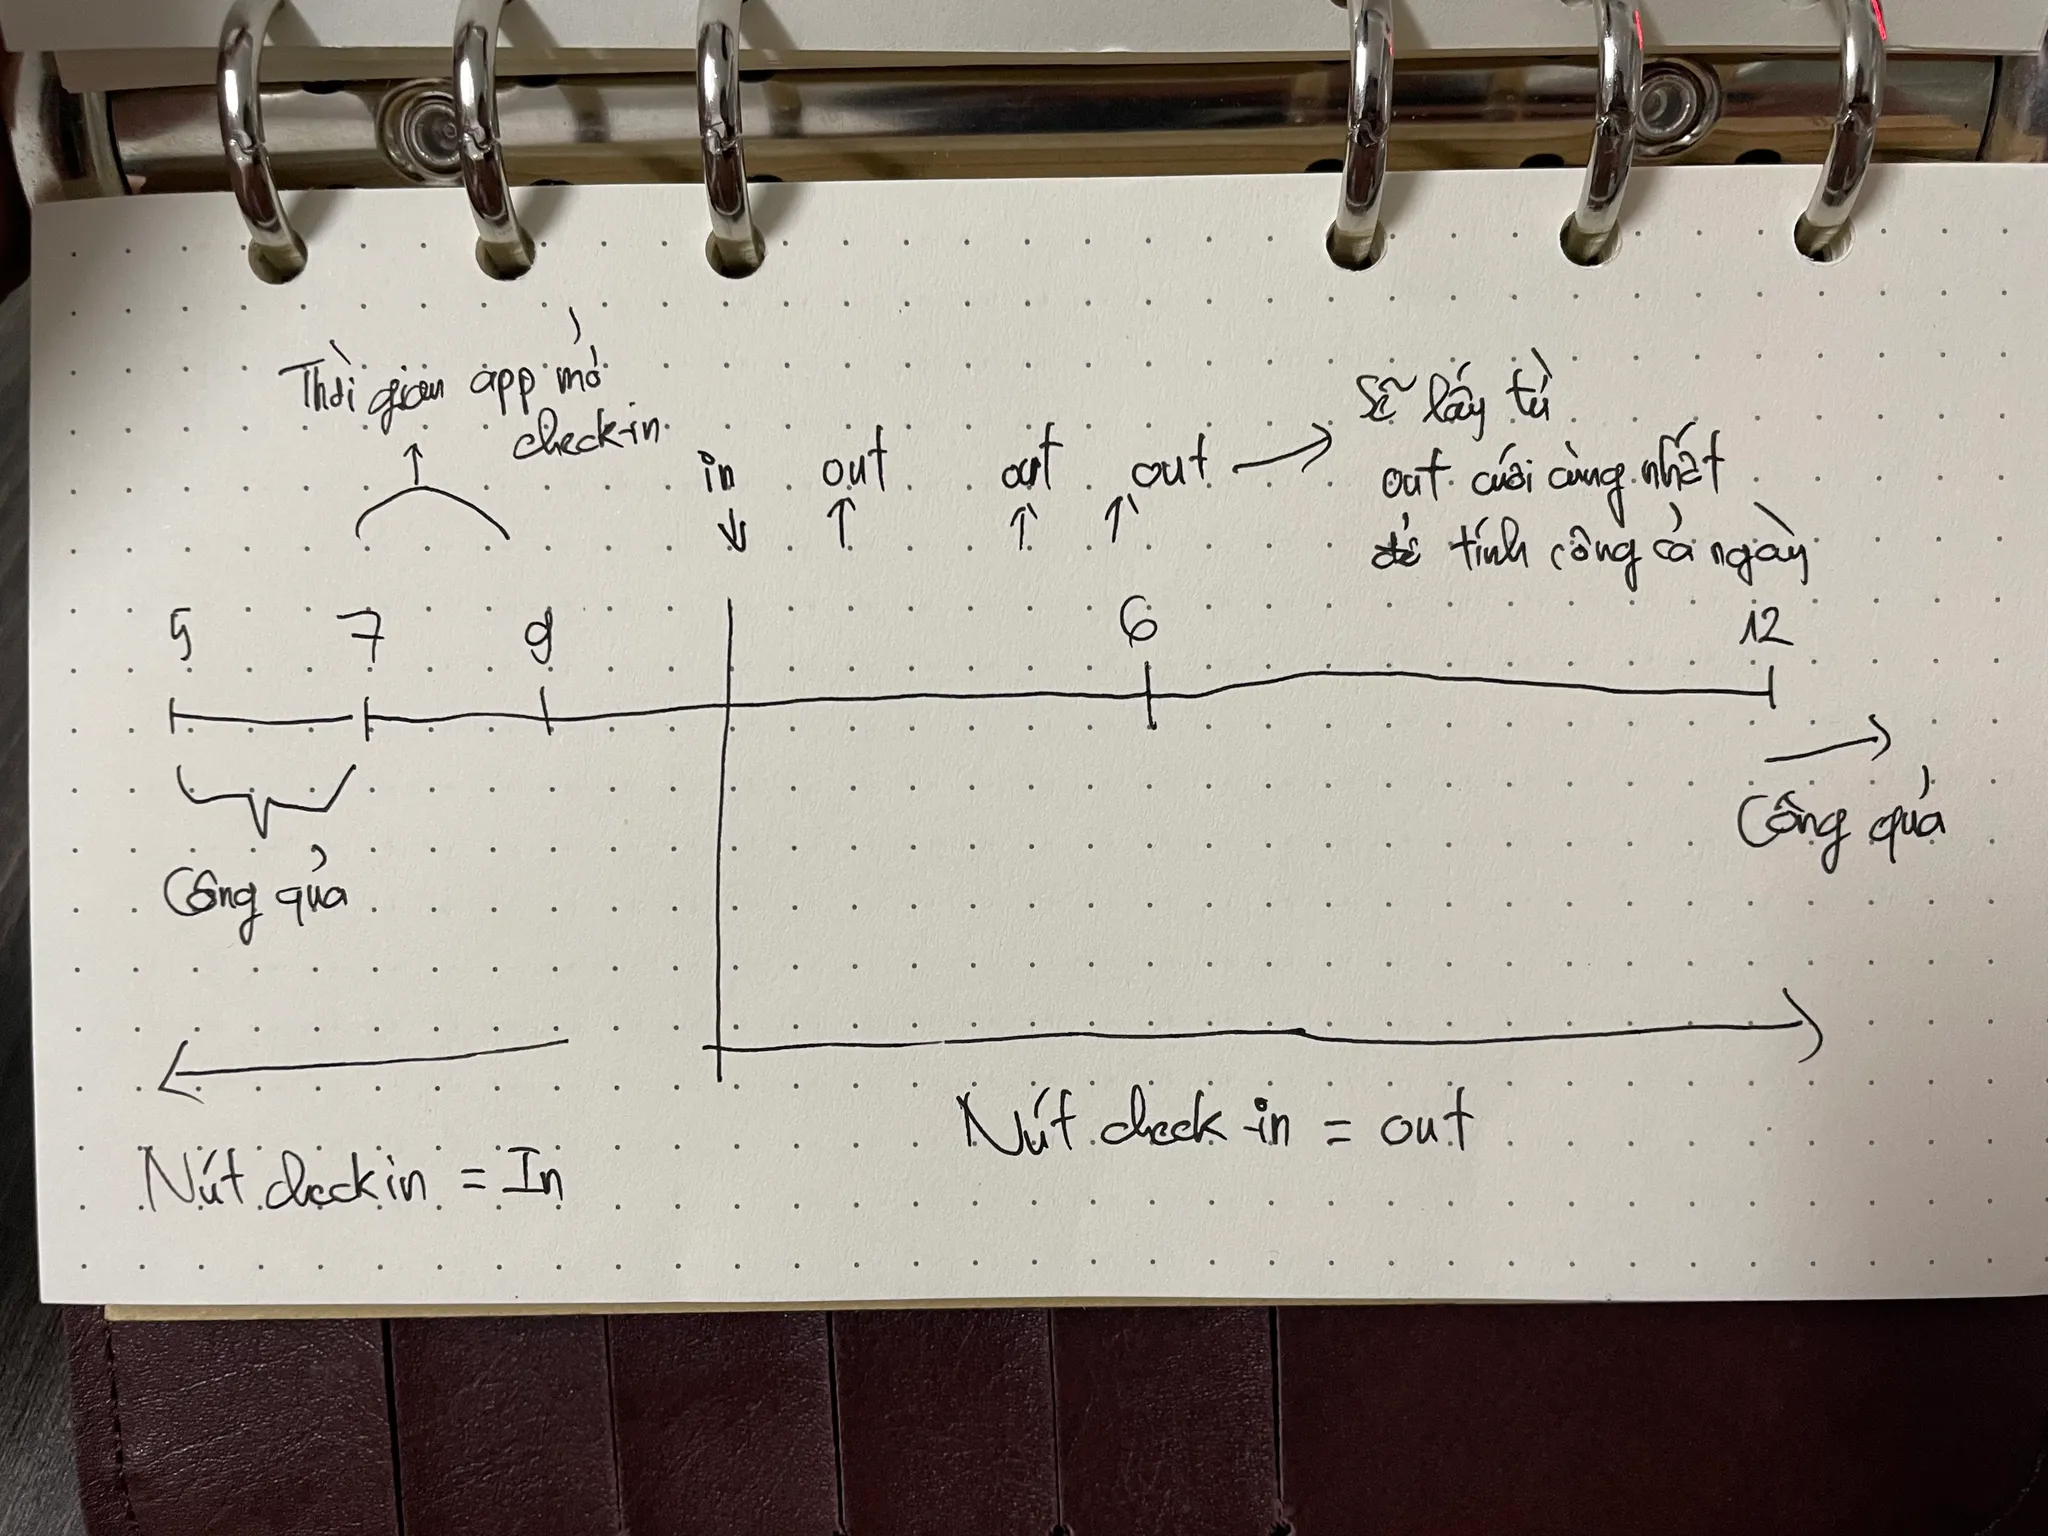 Thời gian app mở
check-in
in out out out → Sẽ lấy từ
out cuối cùng nhất
để tính công cả ngày
5 7 9 6 12
Công quả
Công quả
Nút check in = out
Nút check in = In